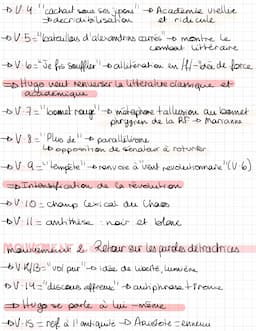 → V.4 "cachait sous ses jupons" → Académie vieille
→ décrédibilisation et ridicule
→ V.5 = "bataillons d'alexandrins carrés" → montre le
combat littéraire
→ V.6 = "Je fis souffler" → allitération en /f/ = de force
⇒ Hugo veut renverser la littérature classique et
académique
→ V.7 = "bonnet rouge" → métaphore + allusion au bonnet
phrygien de la RF → Marianne
→ V.8 = "Plus de" → parallélisme
↳ opposition de sénateur à roturier
→ V.9 = "tempête" → renvoie à "vent révolutionnaire" (V.6)
⇒ Intensification de la révolution
→ V.10 = champ lexical du chaos
→ V.11 = antithèse : noir et blanc
Mouvement 2 - Retour sur les paroles détractrices
→ V.12/13 = "vol pur" → idée de liberté, lumière
→ V.14 = "discours affreux" → antiphrase + ironie
⇒ Hugo se parle à lui-même
→ V.15 = réf à l'antiquité → Aristote = ennemi